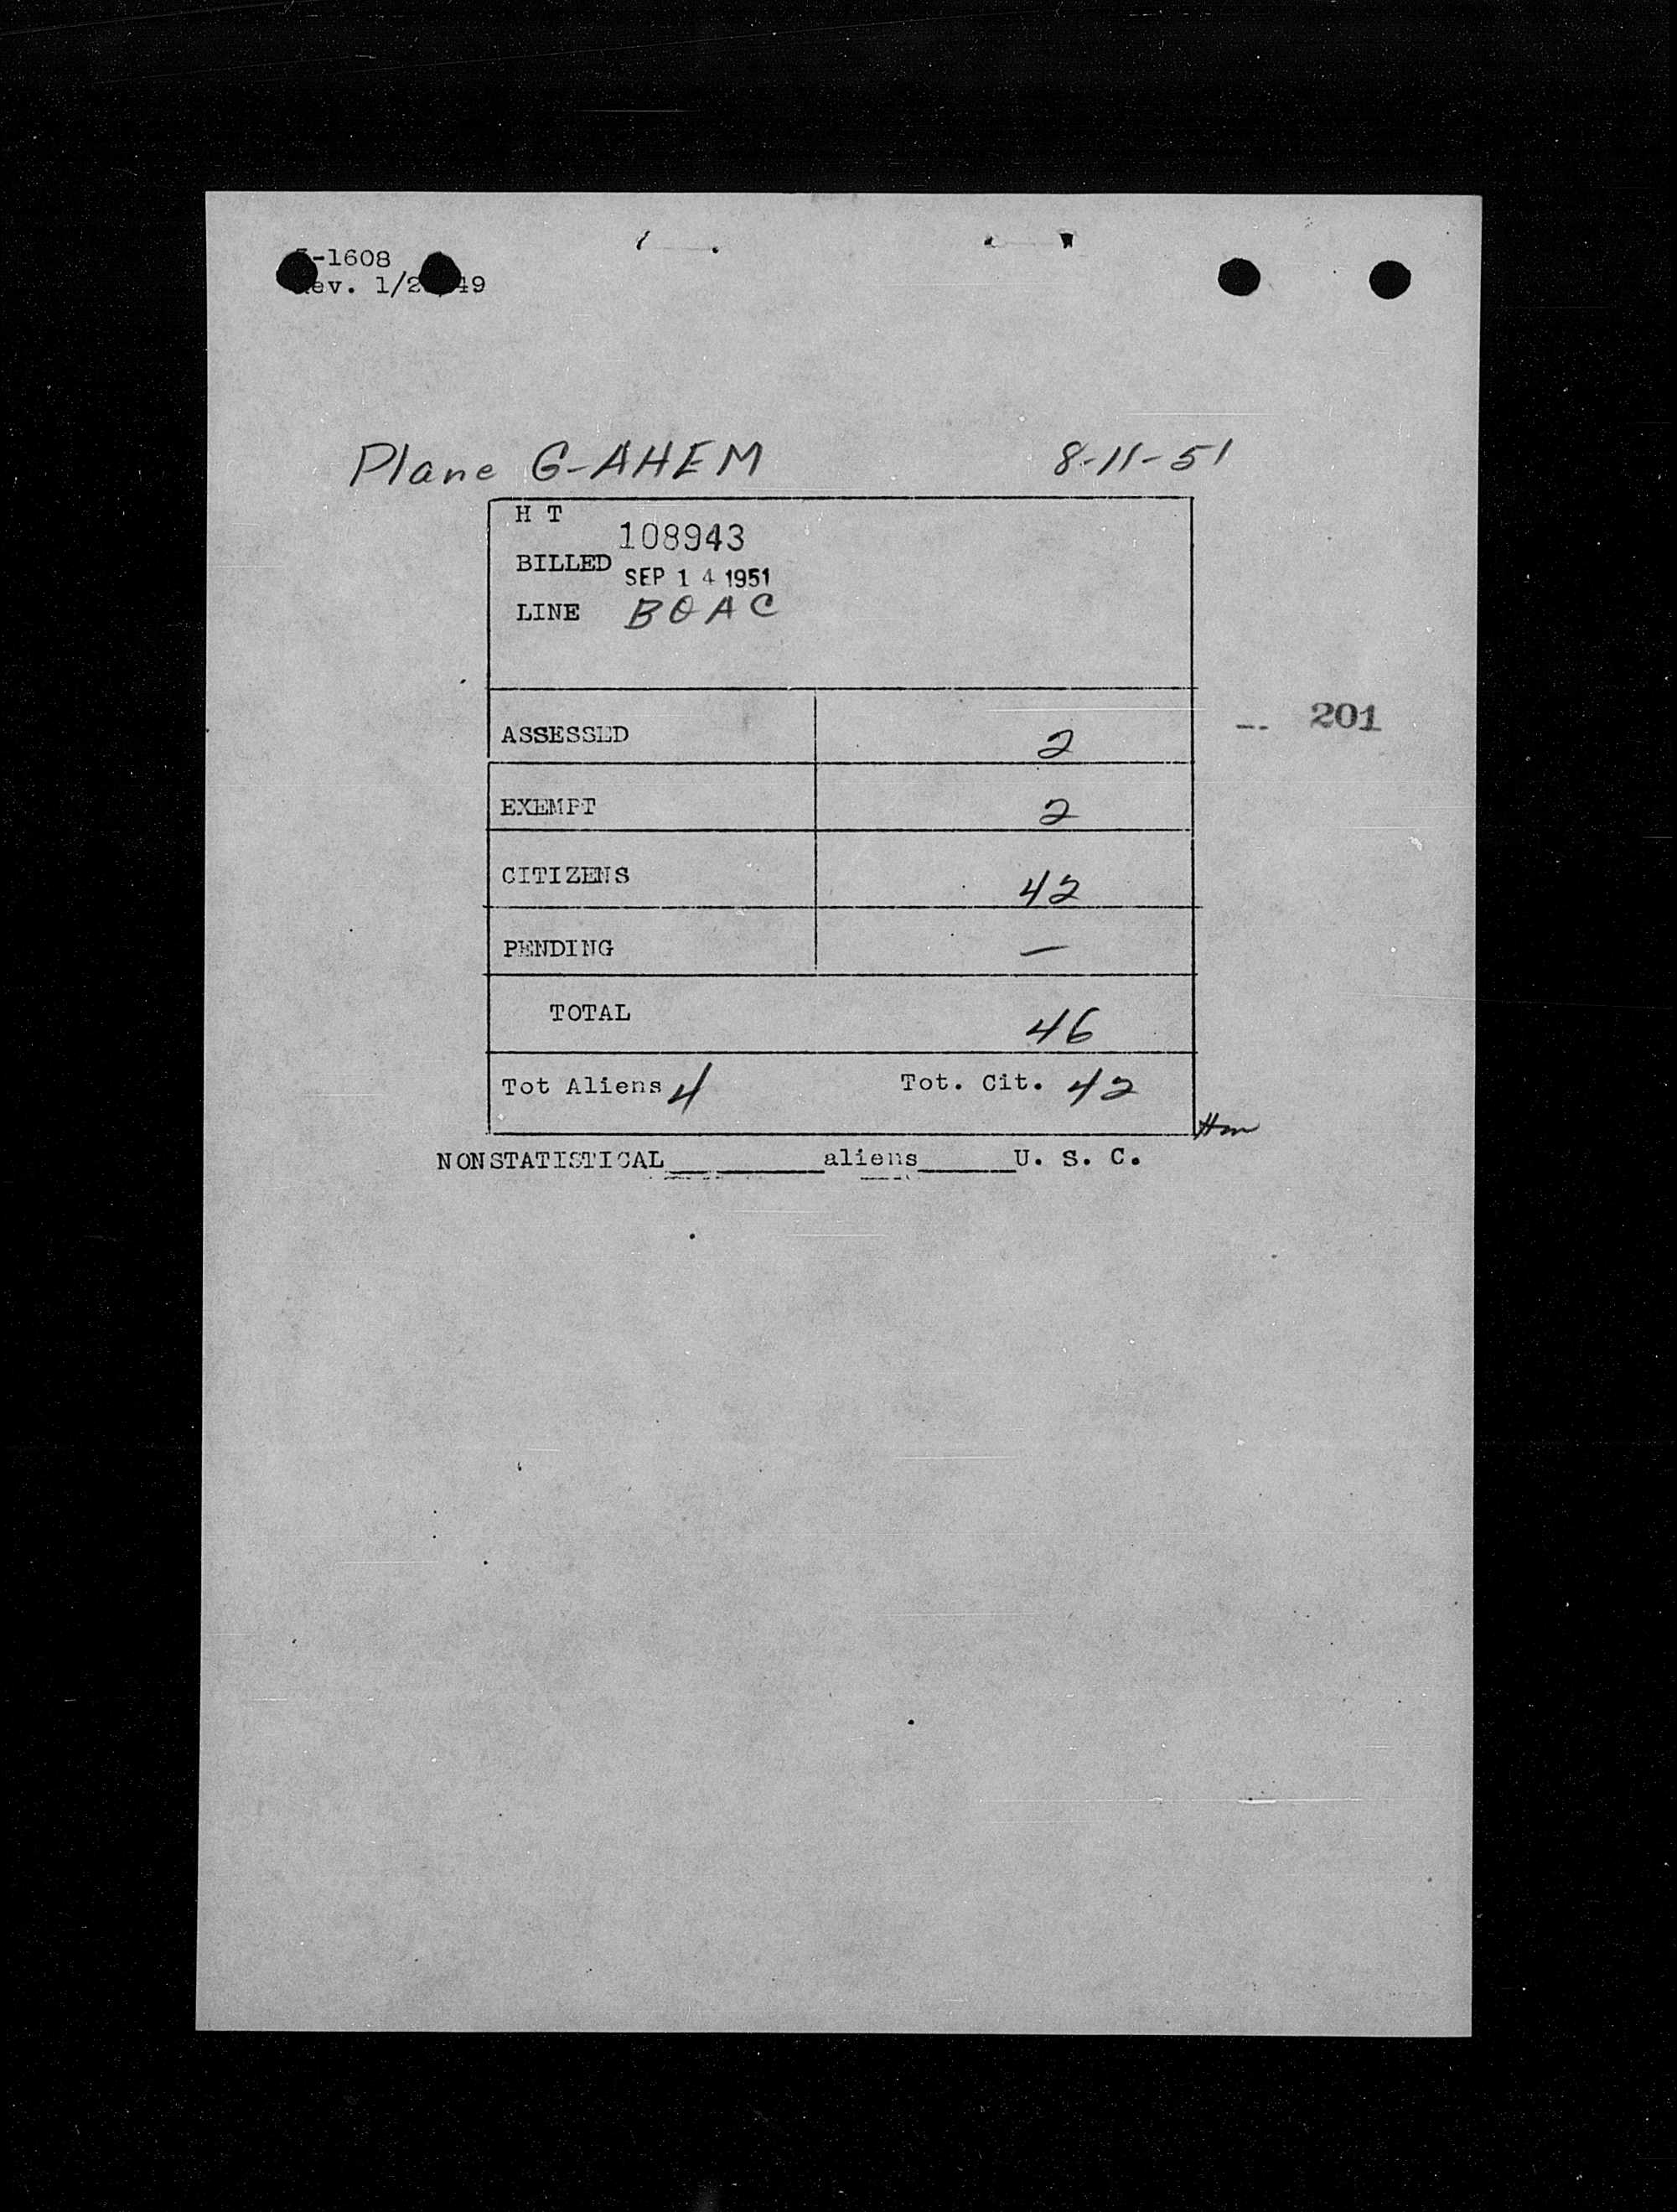 -1608
ev. 1/2 49
Plane G-AHEM 8-11-51
H T
108943
BILLED
SEP 14 1951
LINE BOAC
201
ASSESSED 2
EXEMPT 2
CITIZENS 42
PENDING —
TOTAL 46
Tot Aliens 4 Tot. Cit. 42
NONSTATISTICAL__________aliens______U. S. C.